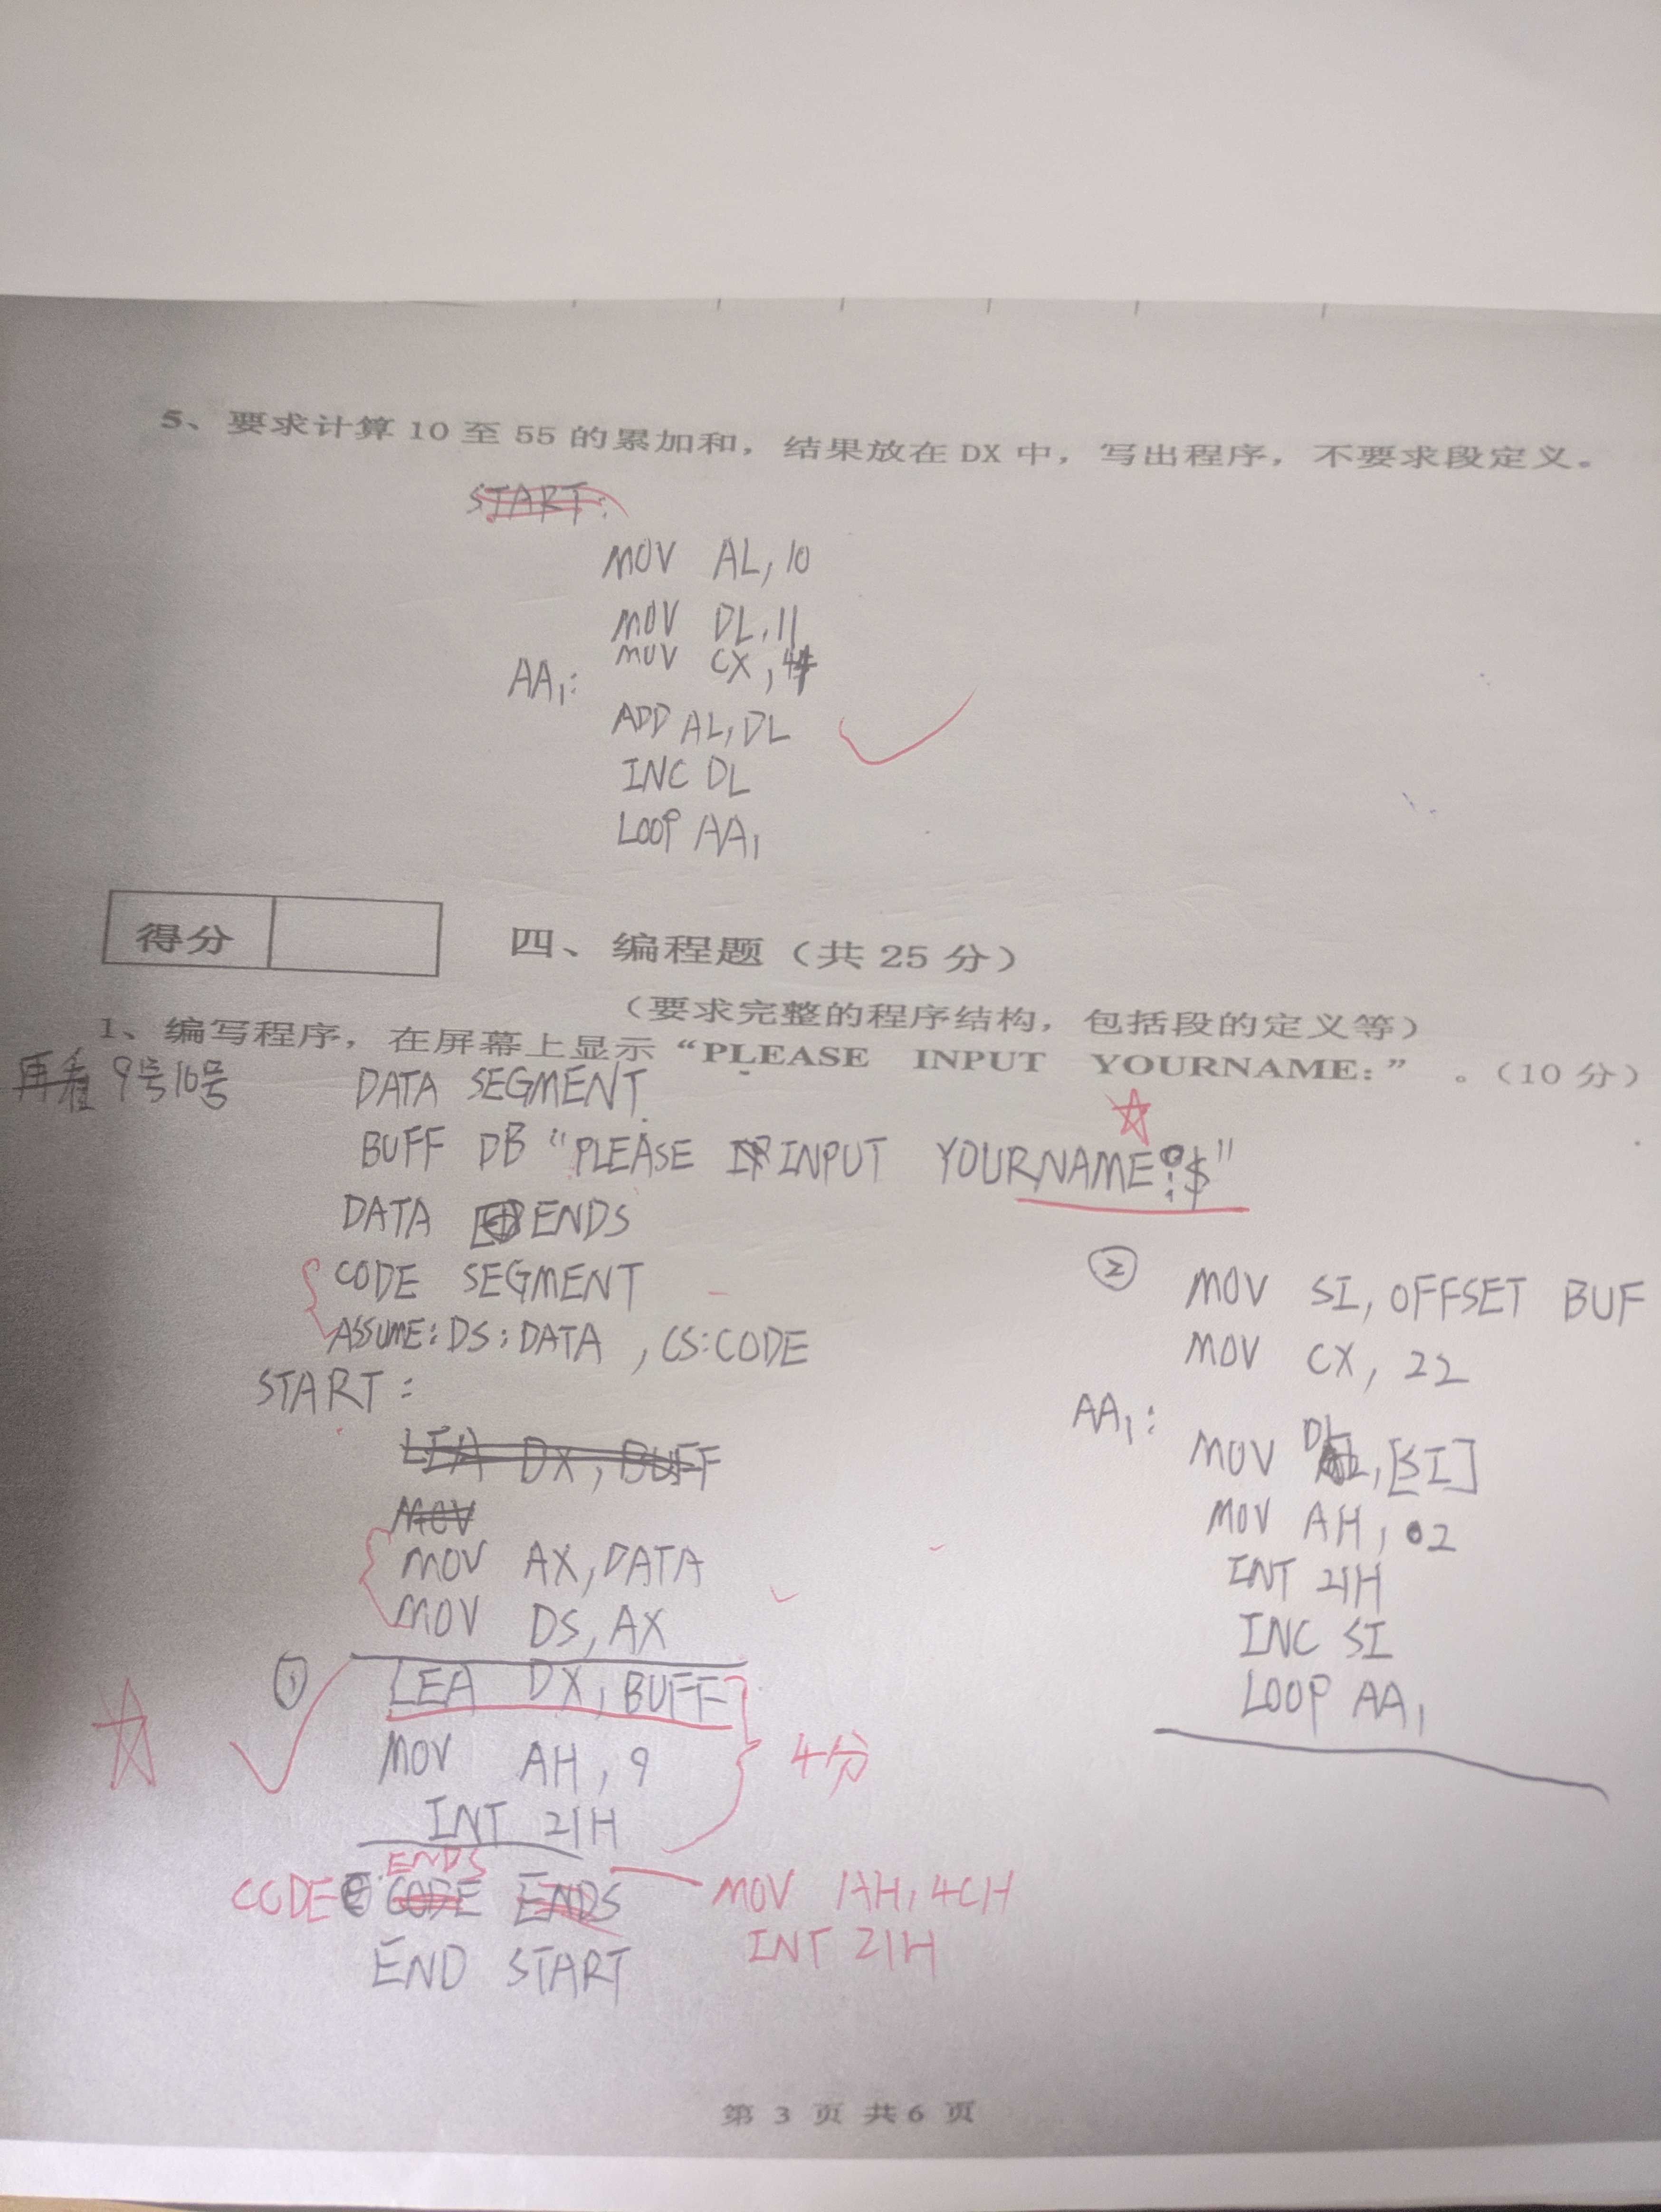 5、要求计算 10 至 55 的累加和，结果放在 DX 中，写出程序，不要求段定义。
START:
MOV AL, 10
MOV DL, 11
MOV CX, 44
AA1:
ADD AL, DL
INC DL
LOOP AA1
得分
四、编程题（共 25 分）
（要求完整的程序结构，包括段的定义等）
1、编写程序，在屏幕上显示“PLEASE INPUT YOURNAME:” 。（10 分）
9号10号
DATA SEGMENT
BUFF DB "PLEASE INPUT YOURNAME:$"
DATA ENDS
CODE SEGMENT
ASSUME: DS: DATA , CS: CODE
START:
LEA DX, BUFF
MOV
MOV AX, DATA
MOV DS, AX
① LEA DX, BUFF
MOV AH, 9
INT 21H
4分
ENDS
CODE CODE ENDS
END START
MOV AH, 4CH
INT 21H
② MOV SI, OFFSET BUF
MOV CX, 22
AA1:
MOV DL, [SI]
MOV AH, 02
INT 21H
INC SI
LOOP AA1
第 3 页 共 6 页